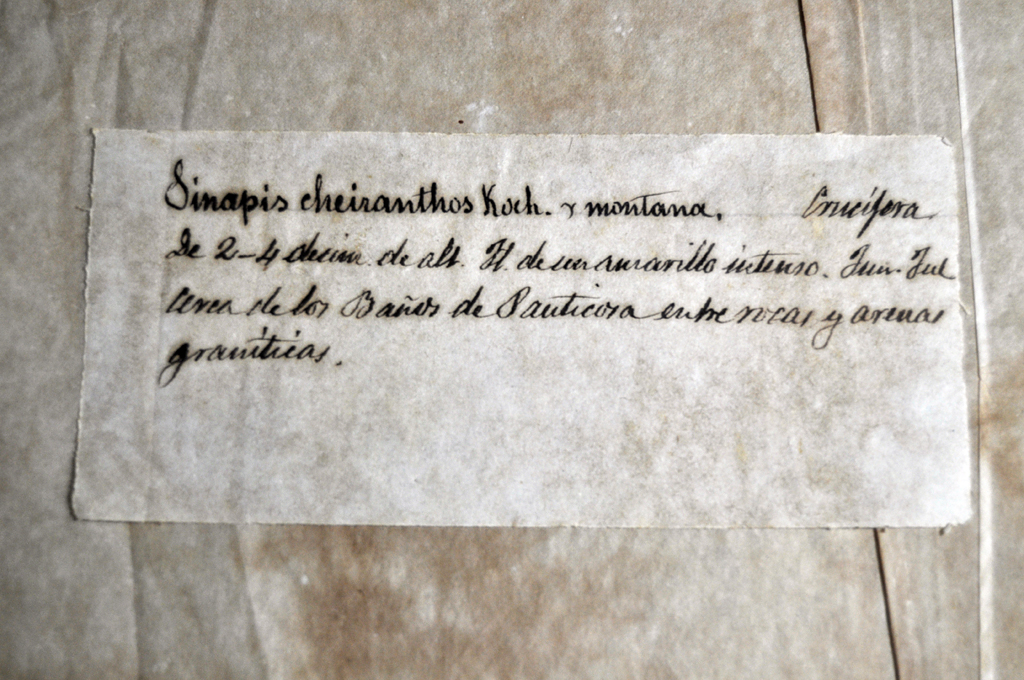 Sinapis cheiranthos Koch. γ montana. Crucífera.
De 2-4 decim. de alt. Fl. de un amarillo intenso. Jun. Jul
Cerca de los Baños de Panticosa entre rocas y arenas
graníticas.